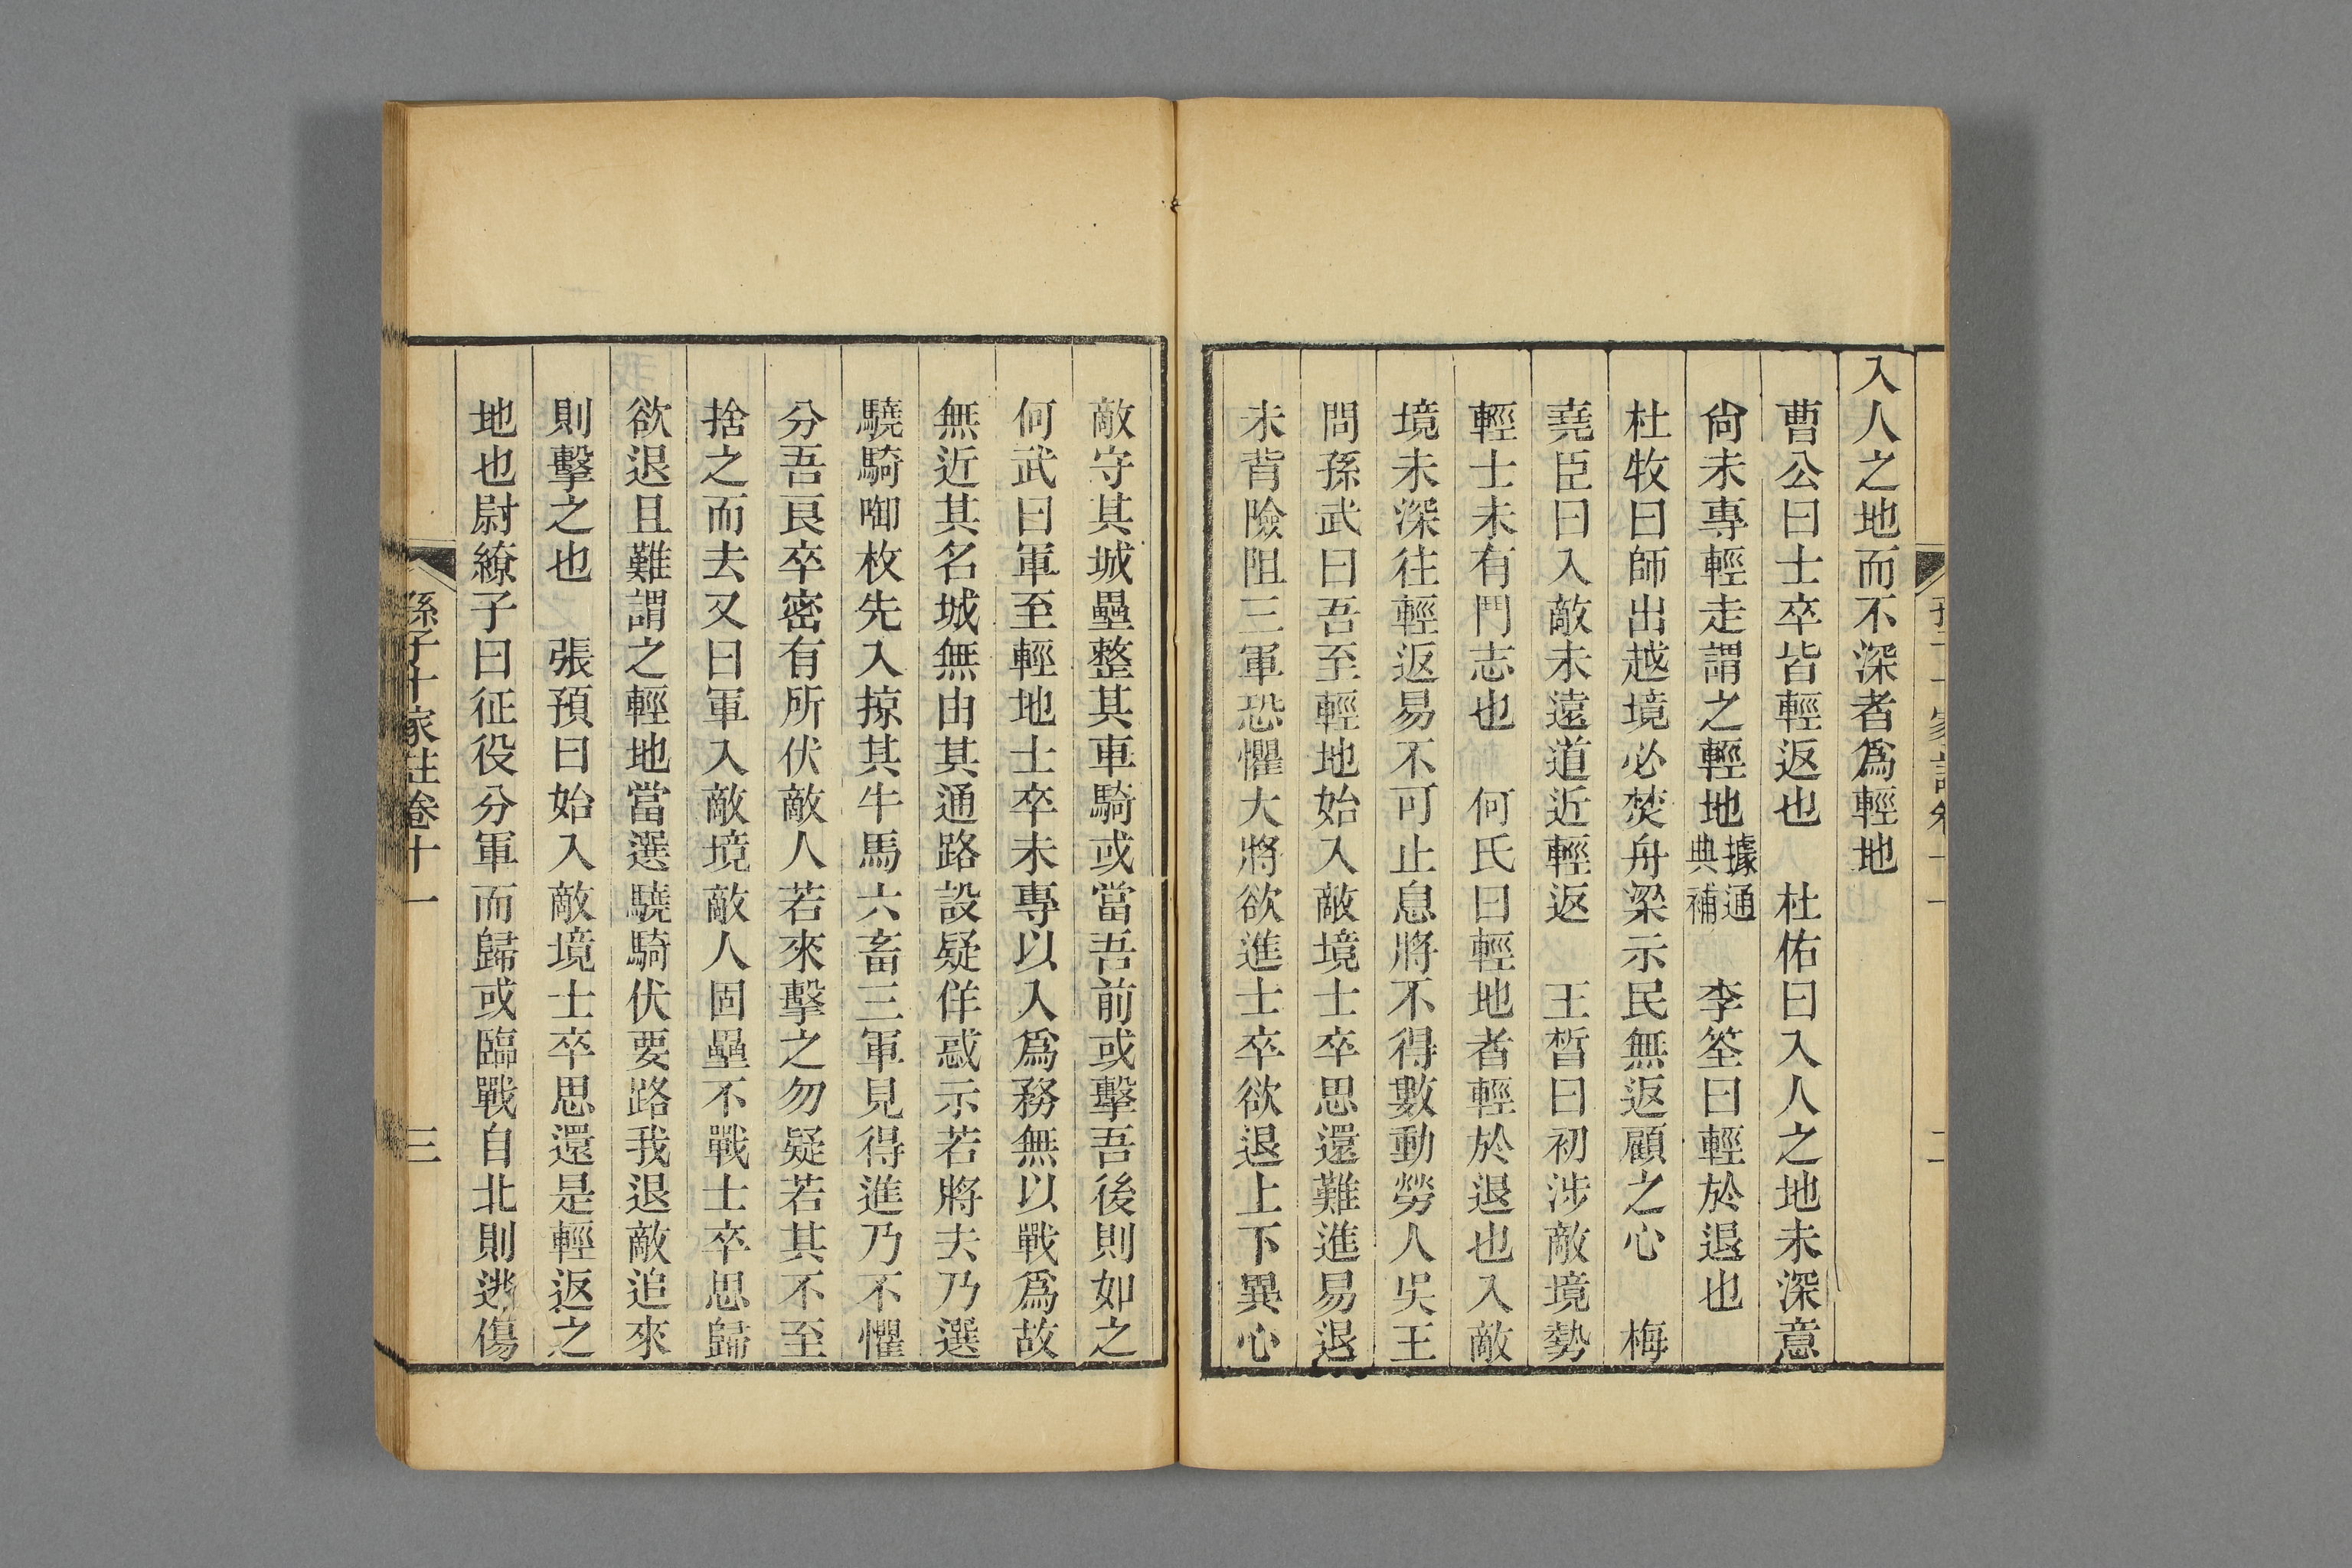 入人之地而不深者爲輕地
曹公曰士卒皆輕返也　杜佑曰入人之地未深意
尙未專輕走謂之輕地據通典補　李筌曰輕於退也
杜牧曰師出越境必焚舟梁示民無返顧之心　梅
堯臣曰入敵未遠道近輕返　王晳曰初涉敵境勢
輕士未有鬥志也　何氏曰輕地者輕於退也入敵
境未深往輕返易不可止息將不得數動勞人吳王
問孫武曰吾至輕地始入敵境士卒思還難進易退
未背險阻三軍恐懼大將欲進士卒欲退上下異心
敵守其城壘整其車騎或當吾前或擊吾後則如之
何武曰軍至輕地士卒未專以入爲務無以戰爲故
無近其名城無由其通路設疑佯惑示若將去乃選
驍騎啣枚先入掠其牛馬六畜三軍見得進乃不懼
分吾良卒密有所伏敵人若來擊之勿疑若其不至
捨之而去又曰軍入敵境敵人固壘不戰士卒思歸
欲退且難謂之輕地當選驍騎伏要路我退敵追來
則擊之也　張預曰始入敵境士卒思還是輕返之
地也尉繚子曰征役分軍而歸或臨戰自北則逃傷
孫子十家註卷十一　三